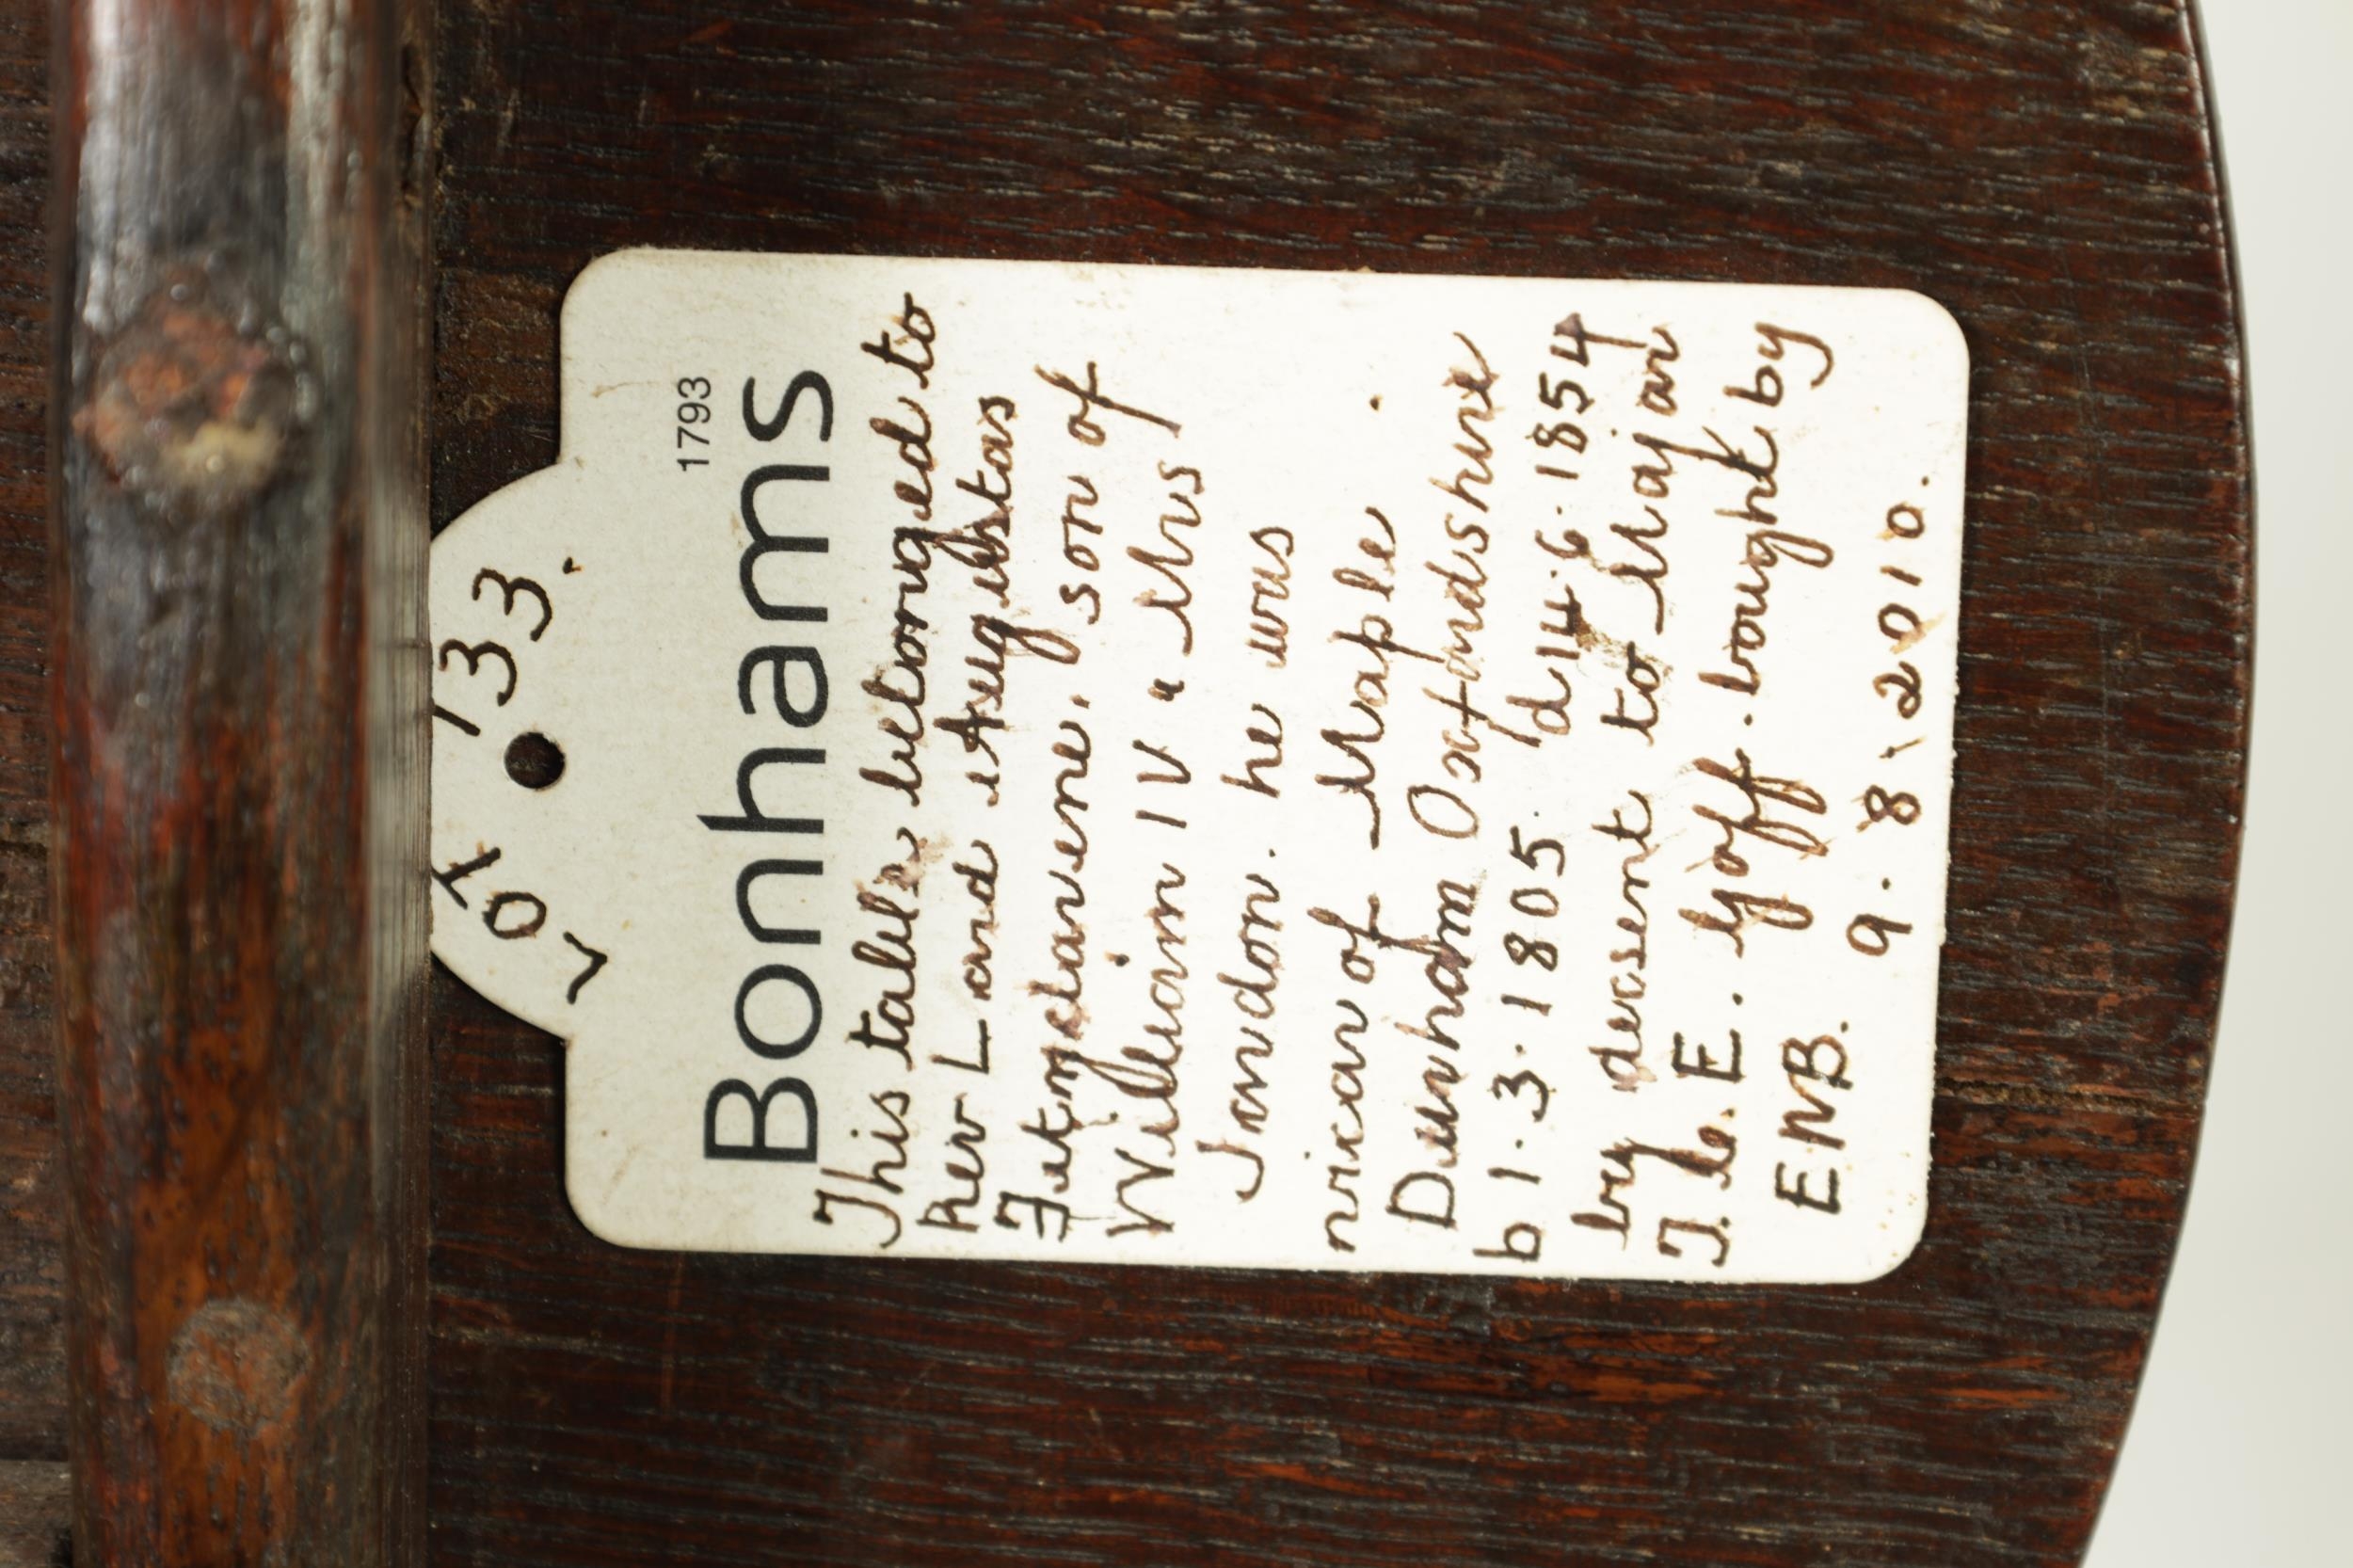 LOT 133.
1793
Bonhams
This table belonged to
Rev Lord Augustas
Fitzclarene, son of
William IV " Mrs
Jordon. he was
vicar of Maple
Durnham Oxfordshire
b 1.3.1805. d 14.6.1854
by decsent to Major
T. le. E. Goff. bought by
ENB. 9.8.2010.